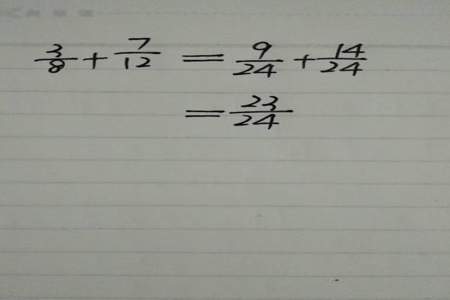 3/8 + 7/12 = 9/24 + 14/24
= 23/24